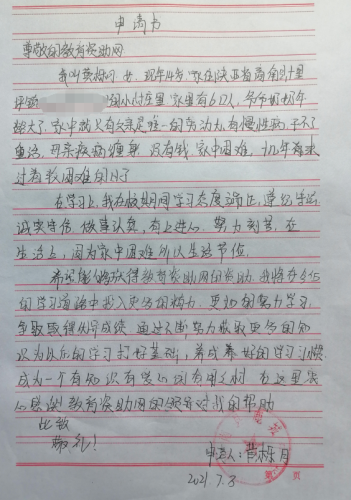 申请书
尊敬的教育资助网
我叫黄栎月 女 现年14岁 家住陕西省商南县十里
坪镇 的小山村里 家里有6口人，爷爷奶奶年
龄大了 家中就父亲是唯一的劳动力 有慢性病 干不了
重活，母亲疾病缠身 没有钱 家中困难，十几年来
过着较困难的日子
在学习上，我在校期间学习态度端正，尊纪守法
诚实守信，做事认真，有上进心 努力刻苦，在
生活上，因为家中困难所以生活节俭。
希望能够获得教育资助网的资助，我将在今后
的学习道路中投入更多的精力，更加的努力学习，
争取取得优异成绩 通过不断努力获取更多的知
识为以后的学习打好基础，养成养好的学习习惯
成为一个有知识有爱心的有用之材 在这里衷
心感谢教育资助网的领导对我的帮助
此致
敬礼！
申请人：黄栎月
2021.7.3
页